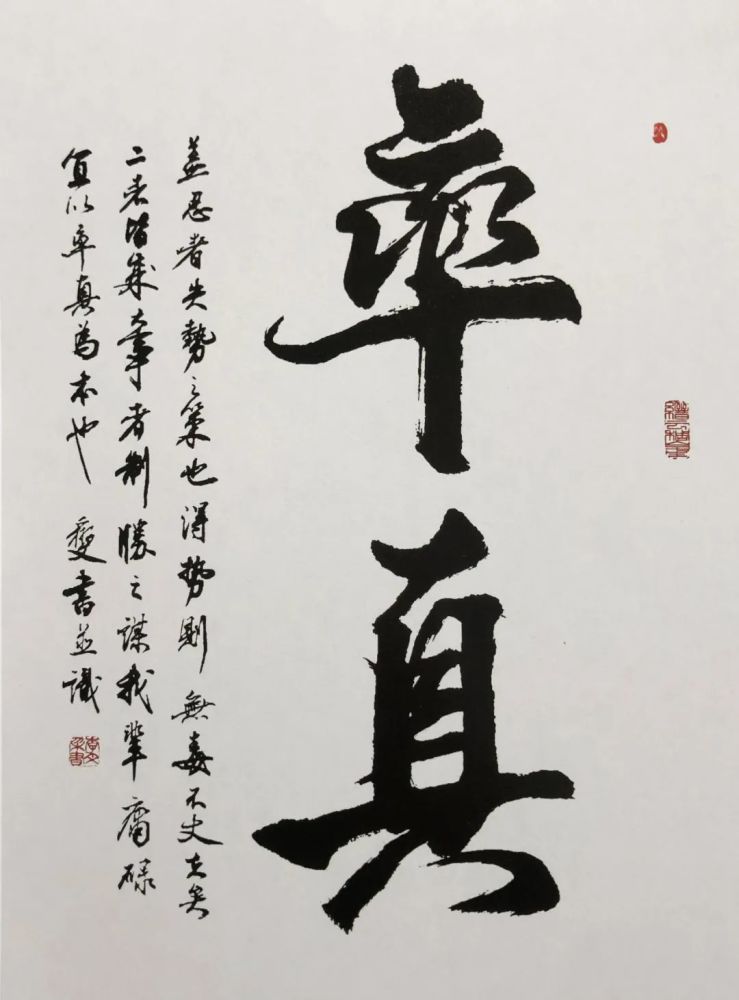 率真
盖忍者失勢之策也得势則無毒不丈夫矣
二者皆成大事者制勝之謀我輩庸碌
宜以率真為本也 書並識